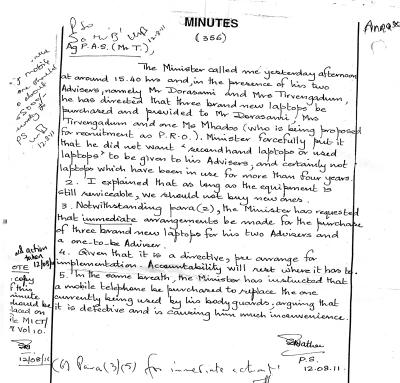 MINUTES
(356)
Ag P.A.S. (Mr T.),
The Minister called me yesterday afternoon
at around 15.40 hrs and, in the presence of his two
Advisers, namely Mr Dorasami and Mrs Tirvengadum,
he has directed that three brand new laptops be
purchased and provided to Mr Dorasami, Mrs
Tirvengadum and one Ms Mhadoo (who is being proposed
for recruitment as P.R.O.). Minister forcefully put it
that he did not want "secondhand laptops or used
laptops" to be given to his Advisers, and certainly not
laptops which have been in use for more than four years.
2. I explained that as long as the equipment is
still serviceable, we should not buy new ones.
3. Notwithstanding para (2), the Minister has requested
that immediate arrangements be made for the purchase
of three brand new laptops for his two Advisers and
a one-to-be Adviser.
4. Given that it is a directive, pse arrange for
implementation. Accountability will rest where it has to.
5. In the same breath, the Minister has instructed that
a mobile telephone be purchased to replace the one
currently being used by his bodyguards, arguing that
it is defective and is causing him much inconvenience.
P.S.
12.08.11.
(6) Para (3)(5) for immediate action pl
action
taken
12/08/11
copy
of this
minute
should be
placed on
file MICT/
12/08/11
12.8.11